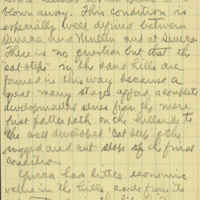 blown away. This condition is
especially well defined between
Seneca and Mullen and at Seneca.
There is no question but that the
"cat steps" in the sand hills are
formed in this way because a
great many stages afford a complete
developmental series from the mere
first cattle path on the hillside to
the well developed "cat step" & the
rugged and cut slope of the final
condition.
Yucca has little economic
value in the hills, aside from its